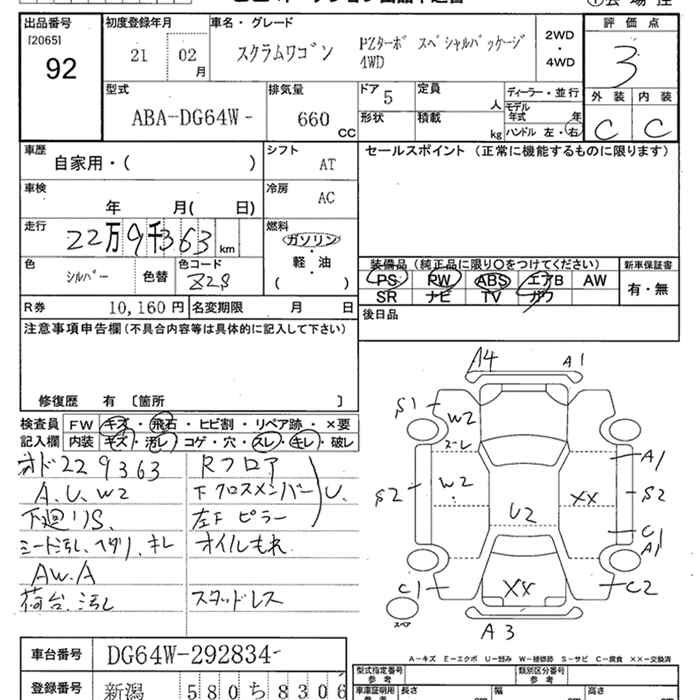 出品番号
[2065]
92
初度登録年月
21 02
月
車名・グレード
スクラムワゴン
PZターボ スペシャルパッケージ
4WD
2WD
・
4WD
評価点
3
外装 内装
C C
型式
ABA-DG64W-
排気量
660
CC
ドア 5
定員
人
形状
積載
kg
ディーラー・並行
モデル年式 年
ハンドル 左・右
車歴
自家用・( )
シフト
AT
車検
年 月( 日)
冷房
AC
走行
22万9千363
km
燃料
ガソリン
軽・油
( )
色
シルバー
色替
色コード
Z2S
R券
10,160円
名変期限 月 日
セールスポイント (正常に機能するものに限ります)
装備品 (純正品に限り○をつけてください)
PS PW ABS エアB AW
SR ナビ TV カワ
新車保証書
有・無
後日品
注意事項申告欄(不具合内容等は具体的に記入して下さい)
修復歴 有 〔箇所 〕
検査員
記入欄
FW キズ・飛石・ヒビ割・リペア跡・×要
内装 キズ・汚レ・コゲ・穴・スレ・キレ・破レ
オド229363
A.U.W2
下廻りS.
シート汚レ、ヘタリ、キレ
AW.A
荷台汚レ
Rフロア
下クロスメンバー
U.
左下ピラー
オイルもれ
スタッドレス
A4
A1
S1
W2
ズーレ
A1
S2
W2
XX
S2
U2
C1
A1
C1
XX
C2
スペア
A3
A-キズ E-エクボ U-凹み W-補修跡 S-サビ C-腐食 XX-交換済
車台番号
DG64W-292834-
登録番号
新潟 580ち8306
型式指定番号
参考
類別区分番号
参考
車庫証明用
長さ
幅
高さ